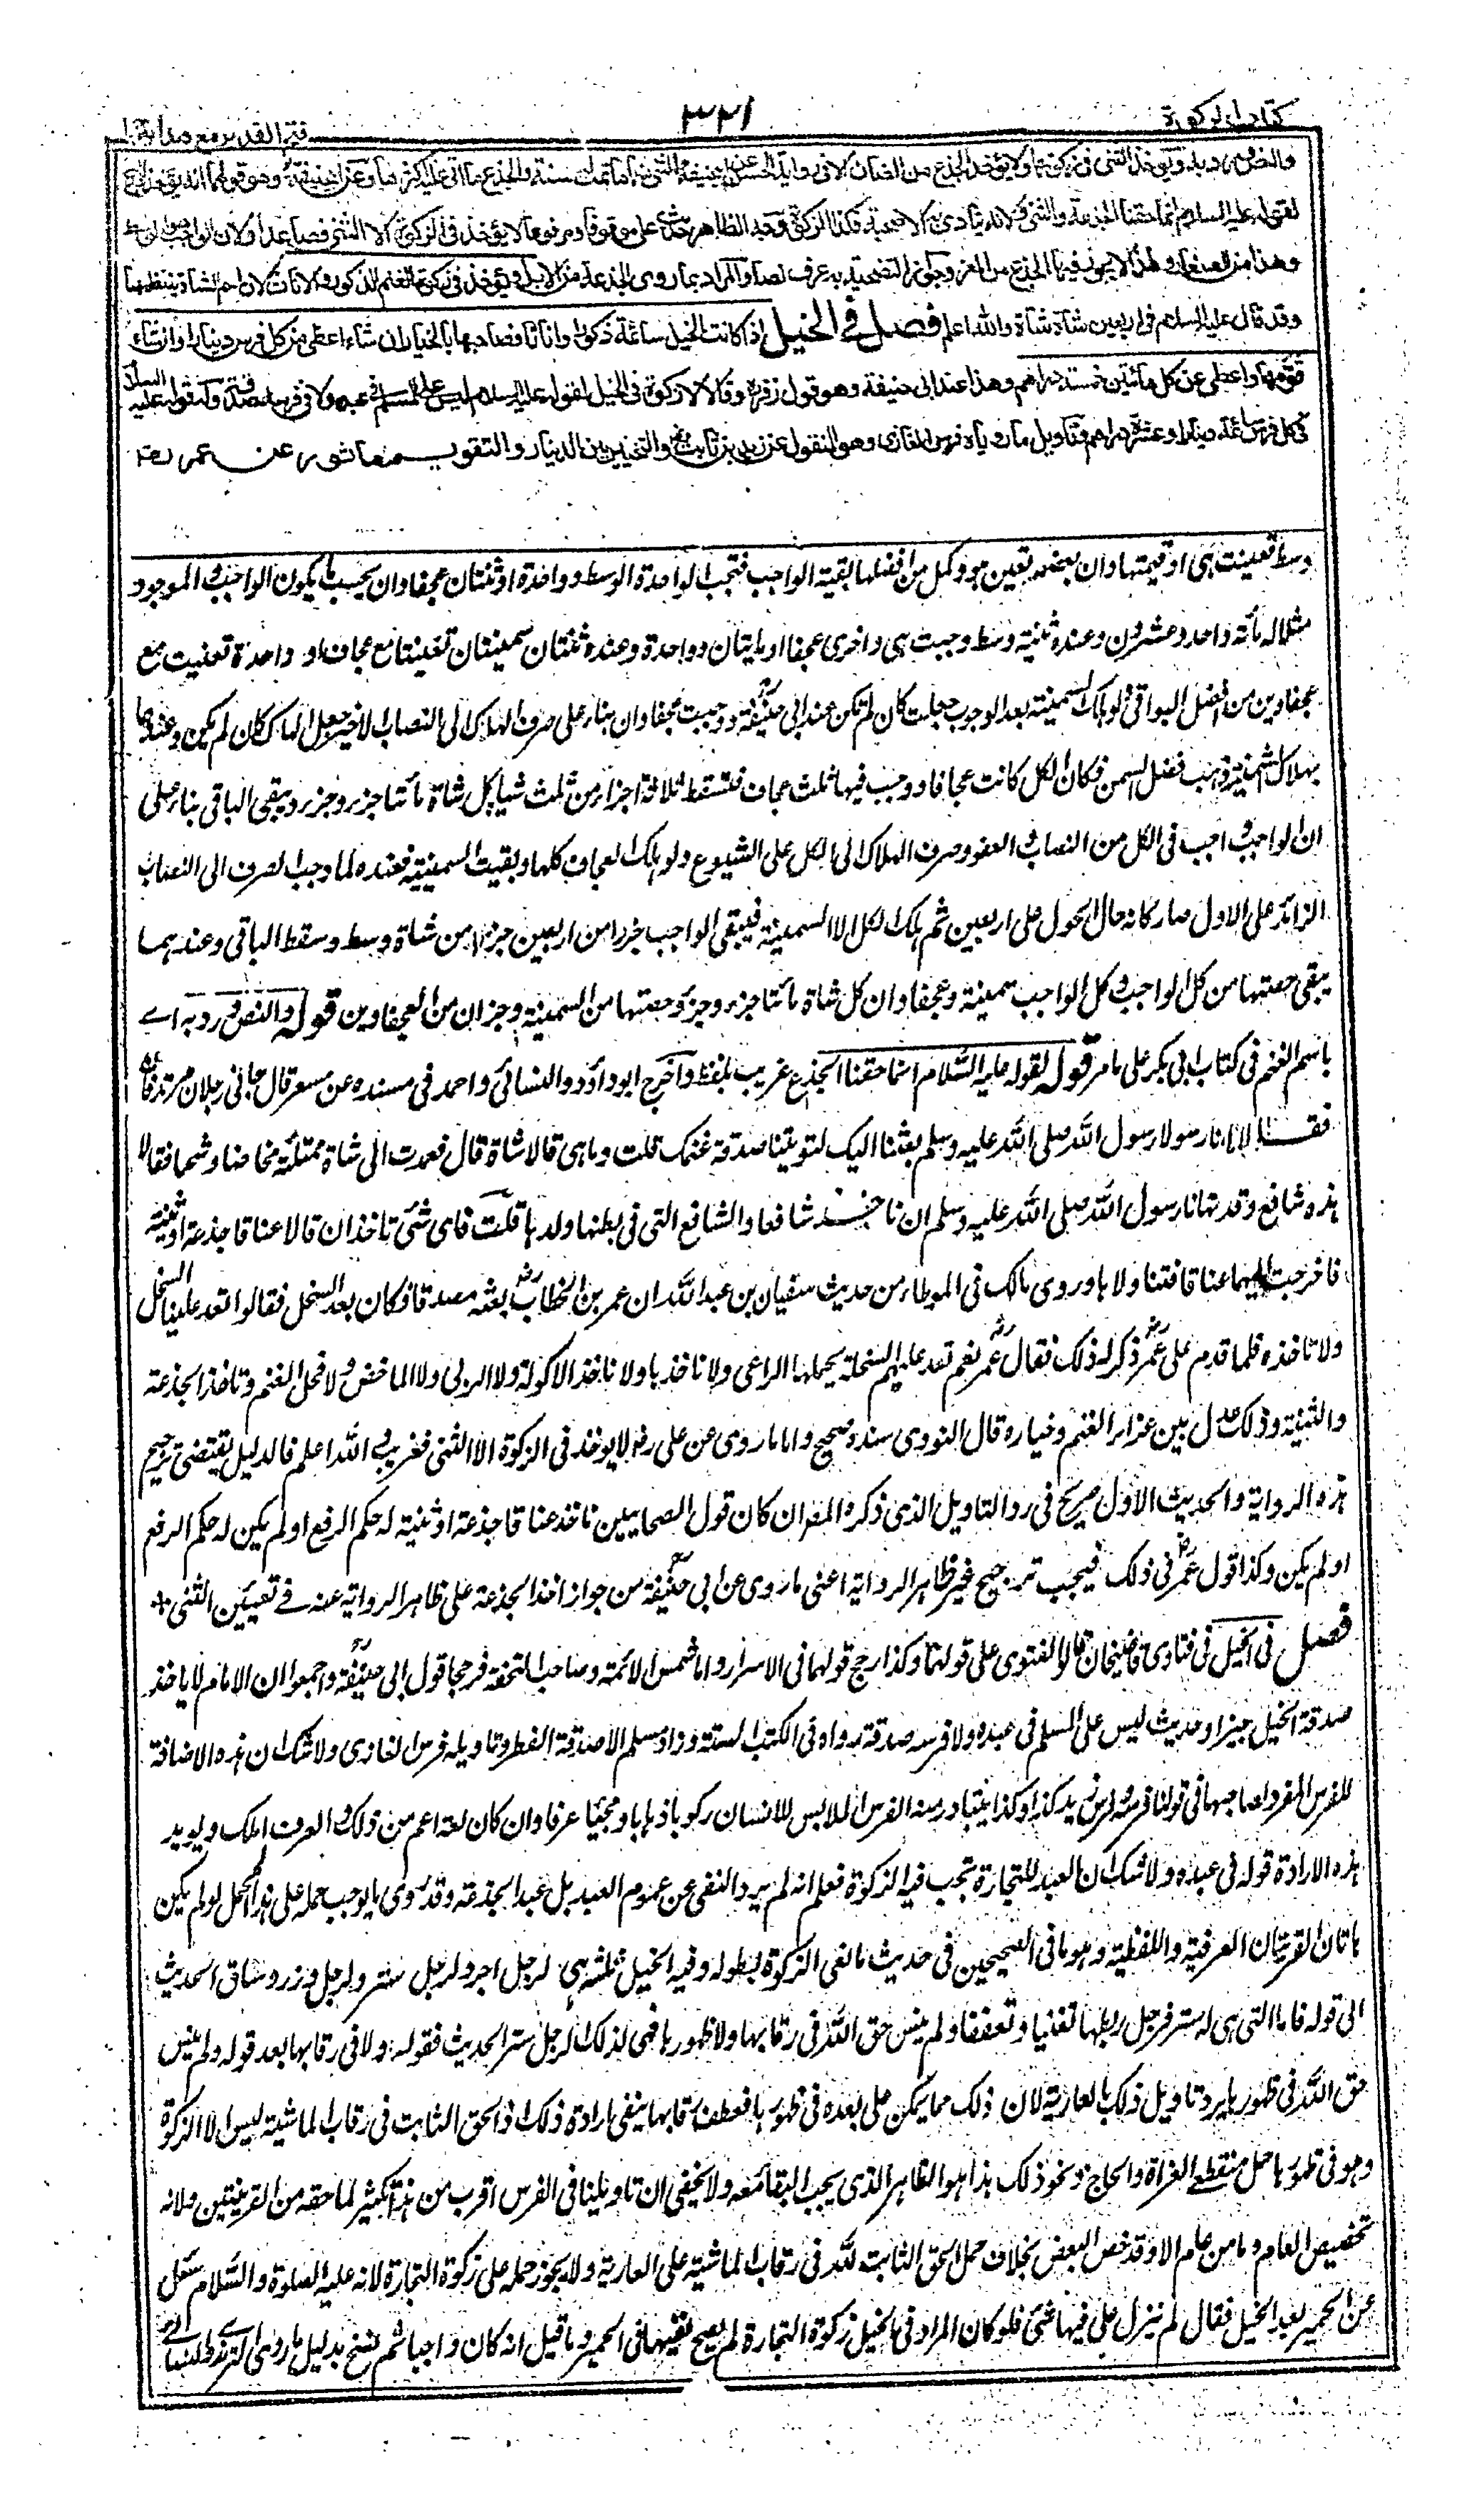 كتاب الزكوة
٣٢١
فتح القدير مع هداية ج ا
والنص ورد به ويؤخذ الثني في زكوتها ولا يؤخذ الجذع من الضان الا في رواية الحسن عن ابي حنيفة والثني منها ما تمت له سنة والجذع ما اتى عليه اكثرها وعن ابي حنيفة وهو قولهما انه يؤخذ الجذع
لقوله عليه السلام انما حقنا الجذعة والثني ولانه يتادى به الاضحية فكذا الزكوة وجه الظاهر حديث علي موقوفا ومرفوعا لا يؤخذ في الزكوة الا الثني فصاعدا ولان الواجب هو الوسط
وهذا من الصغار ولهذا لا يجوز فيها الجذع من المعز وجواز التضحية به عرف نصا والمراد بما روى الجذعة من الابل ويؤخذ في زكوة الغنم الذكور والاناث لان اسم الشاة ينتظمها
وقد قال عليه السلام في اربعين شاة شاة والله اعلم فصل في الخيل اذا كانت الخيل سائمة ذكورا واناثا فصاحبها بالخيار ان شاء اعطى من كل فرس دينارا وان شاء
قومها واعطى عن كل مائتين خمسة دراهم وهذا عند ابي حنيفة وهو قول زفر وقالا لا زكوة في الخيل لقوله عليه السلام ليس على المسلم في عبده ولا في فرسه صدقة وله قوله عليه السلام
في كل فرس سائمة دينار او عشرة دراهم وتاويل ما روياه فرس الغازي وهو المنقول عن زيد بن ثابت والتخيير بين الدينار والتقويم ماثور عن عمر رضه
وسط تعينت هي او قيمتها وان بعضه تعين هو وكمل من افضلها بقية الواجب فتجب الواحدة الوسط وواحدة او ثنتان عجفاوان بحسب ما يكون الواجب والموجود
مثلا له مائة واحد وعشرون وعنده ثنية وسط وجبت هي واخرى عجفا او مايتان وواحدة وعنده ثنتان سمينتان تعينتا مع عجفاء او واحدة تعينت مع
عجفاوين من افضل البواقي فلو هلك السمينة بعد الوجوب جعلت كان لم تكن عند ابي حنيفة ووجبت عجفاوان بناء على صرف الهلاك الى النصاب الاخير وجعل الهالك كان لم يكن وعندهما
بهلاك السمينة ذهب فضل السمن فكان الكل كانت عجافا ووجب فيها ثلث عجاف فتسقط ثلاثة اجزاء من ثلث شياه كل شاة مائتا جزء وجزء ويبقى الباقي بناء على
ان الواجب واجب في الكل من النصاب والعفو وصرف الهلاك الى الكل على الشيوع ولو هلك العجاف كلها وبقيت السمينة فعنده لما وجب الصرف الى النصاب
الزائد على الاول صار كانه حال الحول على اربعين ثم هلك الكل الا السمينة فيبقى الواجب جزءا من اربعين جزءا من شاة وسط وسقط الباقي وعندهما
يبقى حصتها من كل الواجب وكل الواجب سمينة وعجفاوان كل شاة مائتا جزء وجزء وحصتها من السمينة وجزان من العجفاوين قوله والنص ورد به اے
باسم الغنم في كتاب ابي بكر على ما مر قوله لقوله عليه السلام انما حقنا الجذع غريب بلفظه واخرج ابو داؤد والنسائي واحمد في مسنده عن مسعر قال جاءني رجلان مرتدفان
فقالا انا رسولا رسول الله صلى الله عليه وسلم بعثنا اليك لتوتينا صدقة غنمك قلت وما هي قالا شاة قال فعمدت الى شاة ممتلئة مخاضا وشحما فقالا
هذه شافع وقد نهانا رسول الله صلى الله عليه وسلم ان ناخذ شافعا والشافع التي في بطنها ولدها قلت فاى شئ تاخذان قالا عناقا جذعة او ثنية
فاخرجت اليهما عناقا فتناولاها وروى مالك في الموطاء من حديث سفيان بن عبد الله ان عمر بن الخطاب رضه بعثه مصدقا وكان يعد السخل فقالوا تعد علينا السخل
ولا تاخذه فلما قدم على عمر رضه ذكر له ذلك فقال عمر رضه نعم تعد عليهم السخلة يحملها الراعي ولا ناخذها ولا ناخذ الاكولة ولا الربى ولا الماخض ولا فحل الغنم وتاخذ الجذعة
والثنية وذلك عدل بين غذاء الغنم وخياره قال النووي سنده صحيح واما ما روى عن علي رضه لا يوخذ في الزكوة الا الثني فغريب والله اعلم فالدليل يقتضي ترجيح
هذه الرواية والحديث الاول صريح في رد التاويل الذي ذكره المصر ان كان قول الصحابيين ناخذ عناقا جذعة او ثنية له حكم الرفع او لم يكن له حكم الرفع
او لم يكن وكذا قول عمر رضه في ذلك فيجب ترجيح غير ظاهر الرواية اعنى ما روى عن ابي حنيفة من جواز اخذ الجذعة على ظاهر الرواية عنه فے تعيين الثني *
فصل في الخيل في فتاوى قاضيخان قالوا الفتوى على قولهما وكذا رجح قولهما في الاسرار واما شمس الائمة وصاحب التحفة فرجحا قول ابي حنيفة واجمعوا ان الامام لا ياخذ
صدقة الخيل جبرا وحديث ليس على المسلم في عبده ولا فرسه صدقة رواه في الكتب الستة وزاد مسلم الا صدقة الفطر وتاويله فرس الغازي ولا شك ان هذه الاضافة
للفرس المفرد لصاحبها في قولنا فرسه وفرس زيد كذا وكذا يتبادر منه الفرس الملابس للانسان ركوبا ذهابا ومجيئا عرفا وان كان لغة اعم من ذلك والعرف املك ويويد
هذه الارادة قوله في عبده ولا شك ان العبد للتجارة تجب فيه الزكوة فعلم انه لم يرد النفي عن عموم العبد بل عبد الخدمة وقد روى ما يوجب حمله على هذا المحمل لو لم يكن
هاتان القرينتان العرفية واللفظية وهو ما في الصحيحين في حديث مانعي الزكوة بطوله وفيه الخيل ثلثة هي لرجل اجر ولرجل ستر ولرجل وزر وساق الحديث
الى قوله فاما التي هي له ستر فرجل ربطها تغنيا وتعففا ولم ينس حق الله في رقابها ولا ظهورها فهي لذلك الرجل ستر الحديث فقوله ولا في رقابها بعد قوله ولم ينس
حق الله في ظهورها يرد تاويل ذلك بالعارية لان ذلك مما يمكن على بعده في ظهورها فعطف رقابها ينفي ارادة ذلك اذ الحق الثابت في رقاب الماشية ليس الا الزكوة
وهو في ظهورها حمل منقطع الغزاة والحاج ونحو ذلك هذا هو الظاهر الذي يجب البقاء معه ولا يخفى ان تاويلنا في الفرس اقرب من هذا بكثير لما حفه من القرينتين ولانه
تخصيص العام وما من عام الا وقد خص البعض بخلاف حمل الحق الثابت لله في رقاب الماشية على العارية ولا يجوز حمله على زكوة التجارة لانه عليه الصلوة والسلام سئل
عن الحمير بعد الخيل فقال لم ينزل علي فيها شئ فلو كان المراد في الخيل زكوة التجارة لم يصح نفيها في الحمير وما قيل انه كان واجبا ثم نسخ بدليل ما روى الترمذي